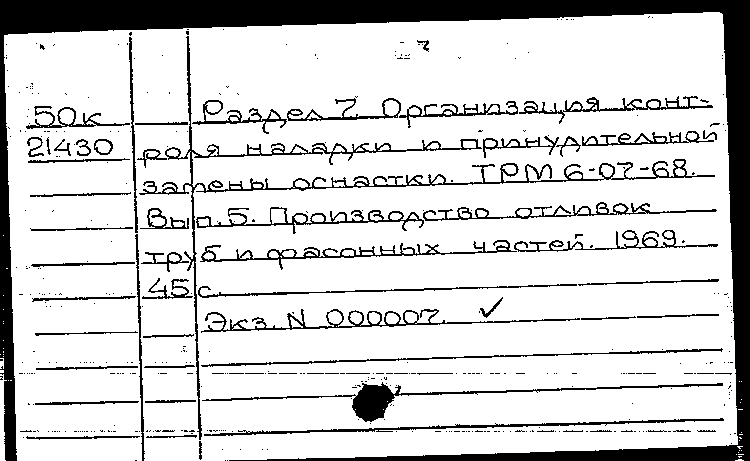 50к Раздел 7. Организация конт-
21430 роля наладки и принудительной
замены оснастки. ТРМ 6-07-68.
Вып. 5. Производство отливок
труб и фасонных частей. 1969.
45 с.
Экз. N 000007. ✓